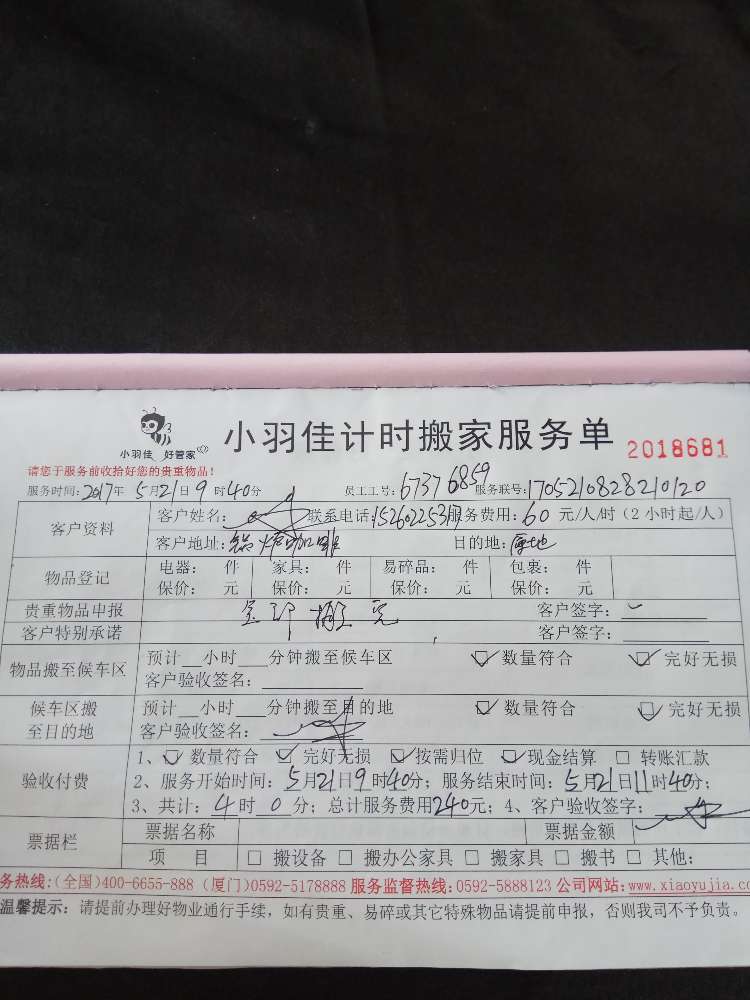 小羽佳 好管家
小羽佳计时搬家服务单 2018681
请您于服务前收拾好您的贵重物品!
服务时间:2017年 5月21日9 时40分 员工工号:67376859 服务联号:170521082821 0120
客户资料 客户姓名: 联系电话: 服务费用:60 元/人/时(2小时起/人)
客户地址: 目的地:
物品登记 电器: 件 家具: 件 易碎品: 件 包裹: 件
保价: 元 保价: 元 保价: 元 保价: 元
贵重物品申报 全部搬完 客户签字:
客户特别承诺 客户签字:
物品搬至候车区 预计__小时___分钟搬至候车区 数量符合 完好无损
客户验收签名:
候车区搬至目的地 预计__小时___分钟搬至目的地 数量符合 完好无损
客户验收签名:
验收付费 1、数量符合 完好无损 按需归位 现金结算 转账汇款
2、服务开始时间:5月21日9时40分; 服务结束时间:5月21日11时40分;
3、共计:4时0分; 总计服务费用240元; 4、客户验收签字:
票据栏 票据名称 票据金额
项 目 搬设备 搬办公家具 搬家具 搬书 其他:
务热线:(全国)400-6655-888 (厦门)0592-5178888 服务监督热线:0592-5888123 公司网站:www.xiaoyujia.co
温馨提示:请提前办理好物业通行手续,如有贵重、易碎或其它特殊物品请提前申报,否则我司不予负责。